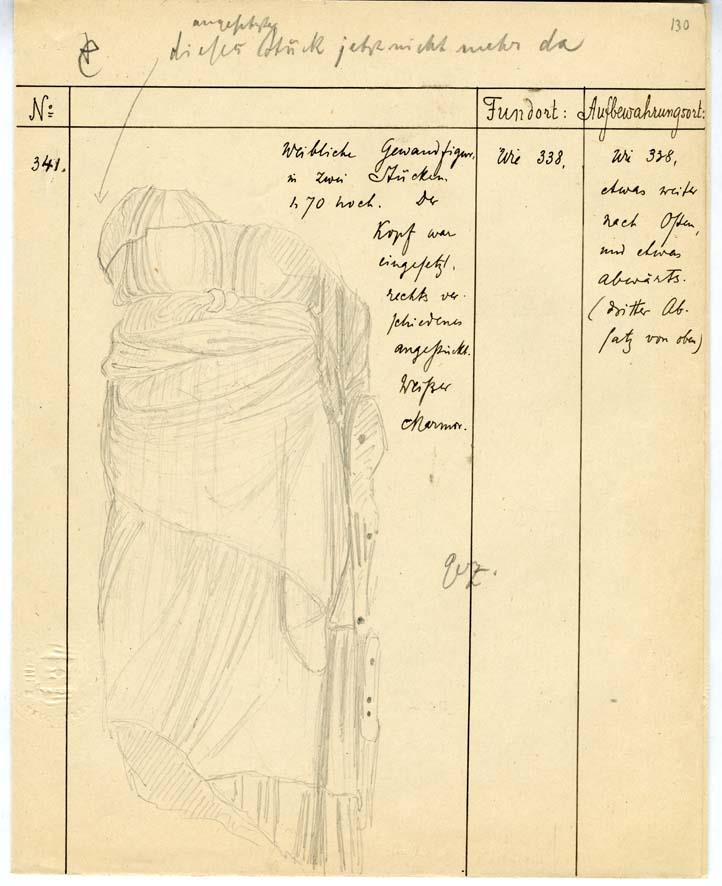 130
angesetzte
dieses Stück jetzt nicht mehr da
No:
Fundort:
Aufbewahrungsort:
341.
Weibliche Gewandfigur,
in zwei Stücken.
1,70 hoch. Der
Kopf war
eingesetzt.
rechts ver-
schiedenes
angestückt.
Weißer
Marmor.
Wie 338.
Wie 338,
etwas weiter
nach Osten,
und etwas
abwärts.
(dritter Ab-
satz von oben)
gez.